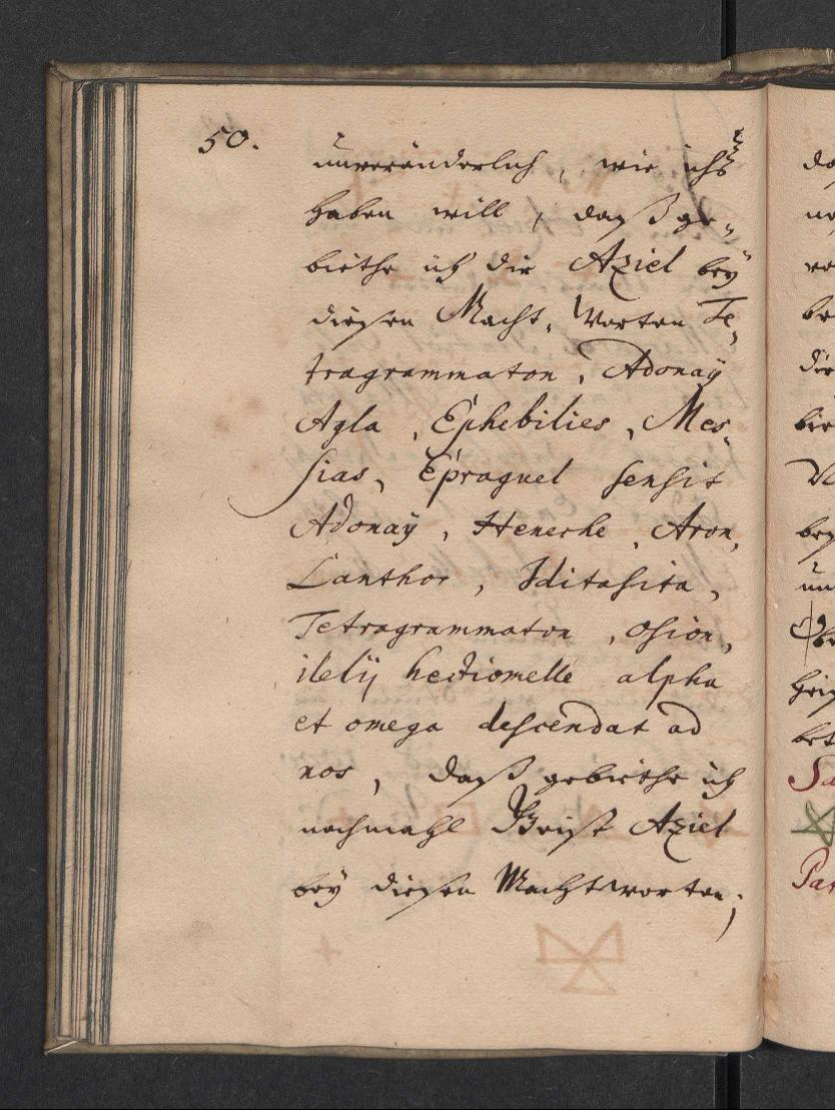 50.
unveränderlich, wie ichs
haben will, daß ge-
biethe ich dir Aziel beÿ
diesen Macht, Worten Te-
tragrammaton, Adonaÿ
Agla, Ephebilies, Mes-
sias, Epraguel sensit
Adonaÿ, Heneche, Aron,
Lanthor, Iditasita,
Tetragrammaton, Osion,
ilelij hectiomelle alpha
et omega descendat ad
nos, daß gebiethe ich
nochmahl Geist Aziel
beÿ diesen Machtworten;
Sa
Par